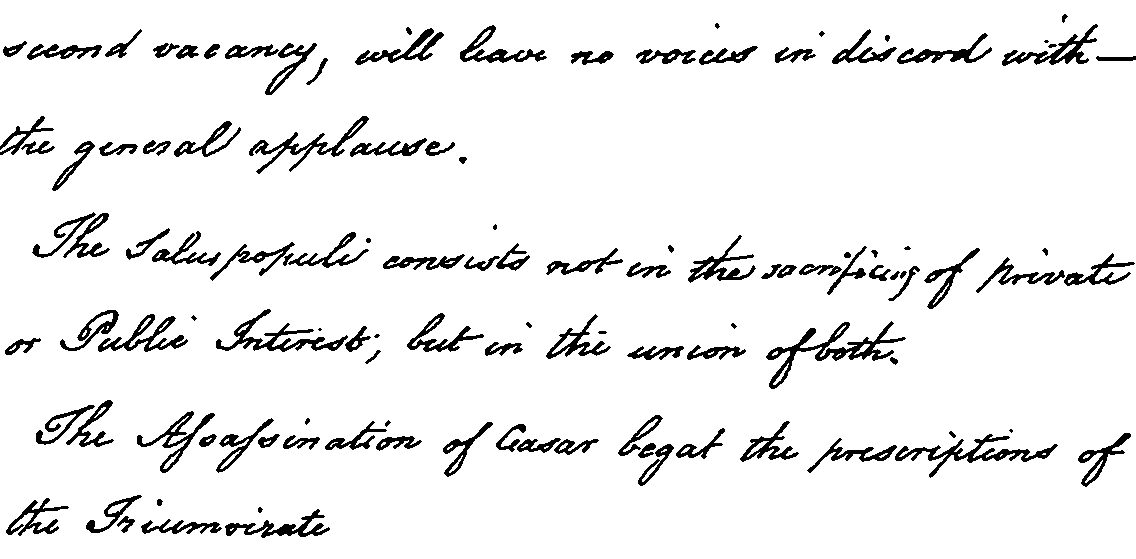 second vacancy, will leave no voices in discord with—
the general applause.
The Salus populi consists not in the sacrificing of private
or Public Interest; but in the union of both.
The Assassination of Caesar begat the prescriptions of
the Triumvirate